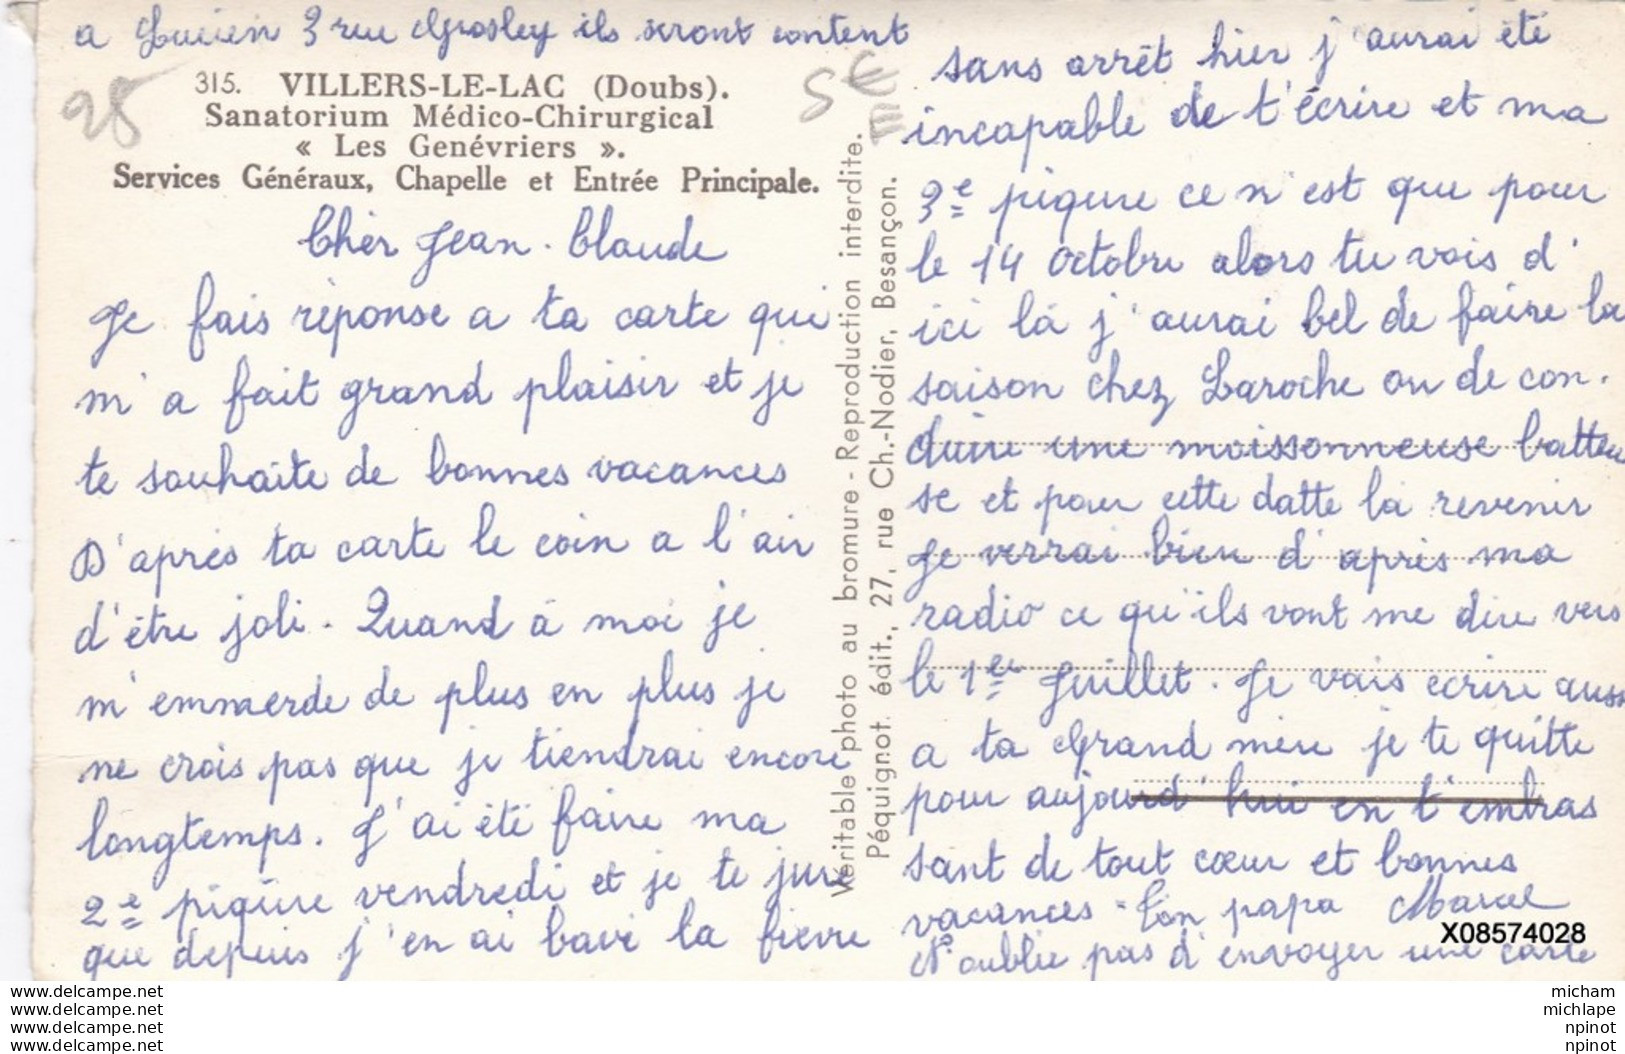 a Lucien 3 rue Grosley ils seront content
315. VILLERS-LE-LAC (Doubs).
Sanatorium Médico-Chirurgical
« Les Genévriers ».
Services Généraux, Chapelle et Entrée Principale.
Chèr Jean-Claude
Je fais réponse a ta carte qui
m'a fait grand plaisir et je
te souhaite de bonnes vacances
D'après ta carte le coin a l'air
d'être joli. Quand à moi je
m'emmerde de plus en plus je
ne crois pas que je tiendrai encore
longtemps. J'ai été faire ma
2e piqûre vendredi et je te jure
que depuis j'en ai bavé la fièvre
Véritable photo au bromure - Reproduction interdite.
Péquignot édit., 27, rue Ch.-Nodier, Besançon.
sans arrêt hier j'aurai été
incapable de t'écrire et ma
3e piqure ce n'est que pour
le 14 octobre alors tu vois d'
ici là j'aurai bel de faire la
saison chez Laroche ou de con.
duire une moissonneuse batteu
se et pour cette datte là revenir
Je verrai bien d'après ma
radio ce qu'ils vont me dire vers
le 1er Juillet. Je vais ecrire auss
a ta Grand mère je te quitte
pour aujourd'hui en t'embras
sant de tout cœur et bonnes
vacances. Ton papa Marcel
N'oublie pas d'envoyer une carte
X08574028
www.delcampe.net
www.delcampe.net
www.delcampe.net
www.delcampe.net
micham
michlape
npinot
npinot